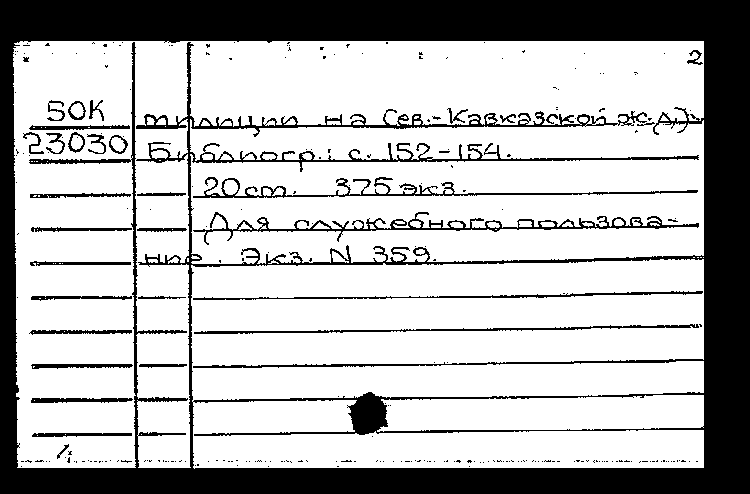 2
50К милиции на Сев.-Кавказской ж.д.).
23030 Библиогр.: с. 152-154.
20 cm. 375 экз.
Для служебного пользова-
ние. Экз. N 359.